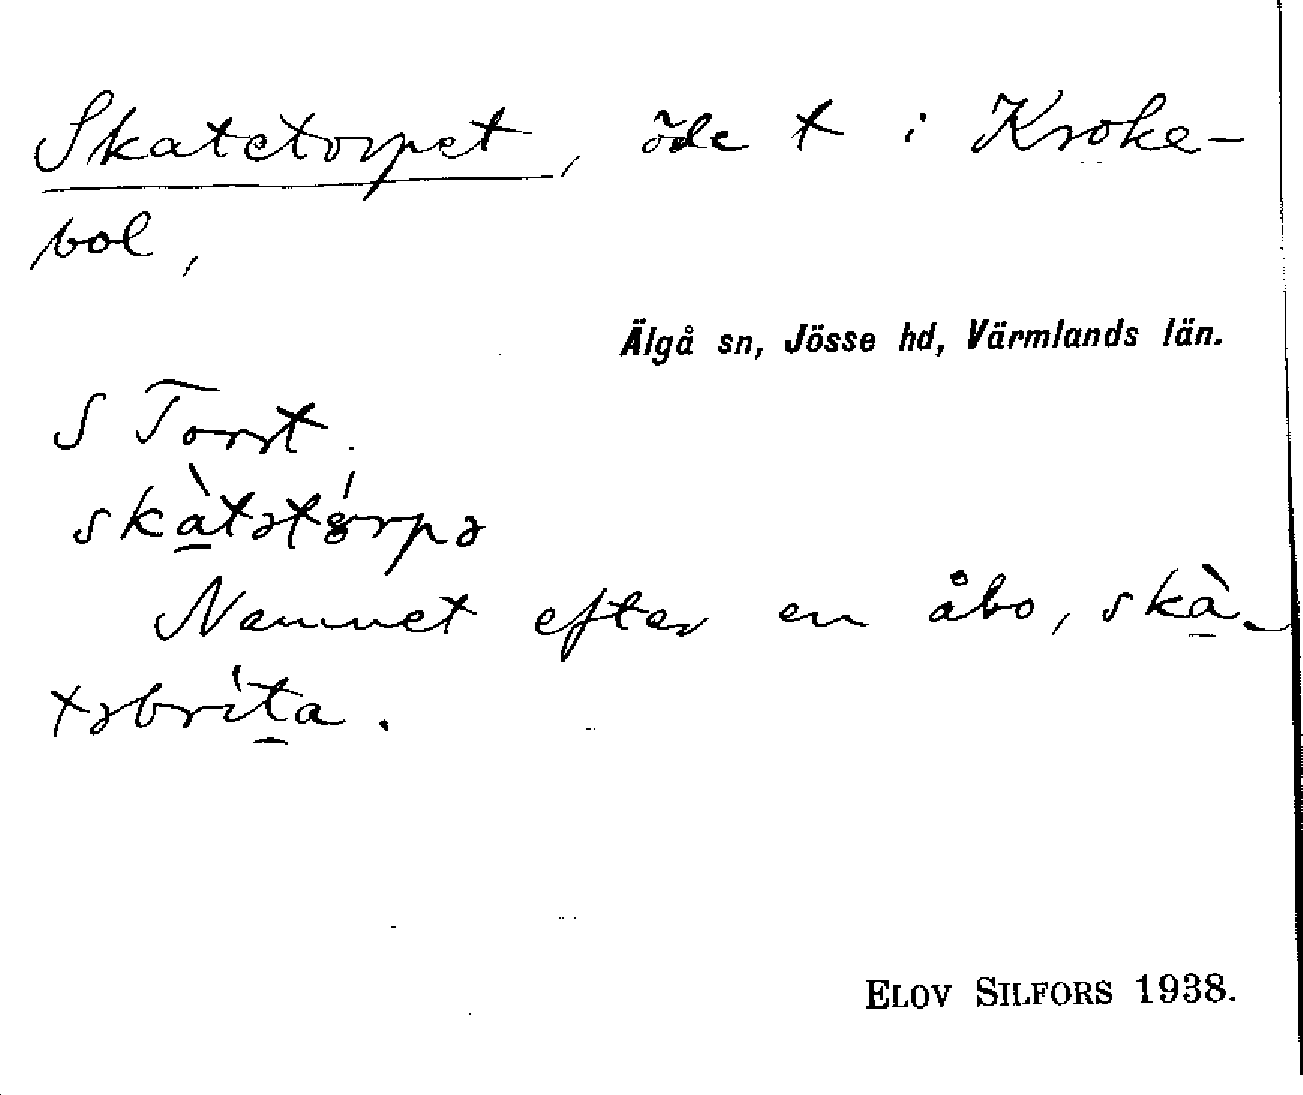 Skatetorpet, öde t i Kroke-
bol,
Älgå sn, Jösse hd, Värmlands län.
S Torst.
skà̱tətȣ́rpə
Namnet efter en åbo, skà̱-
təbrít̠a.
ELOV SILFORS 1938.